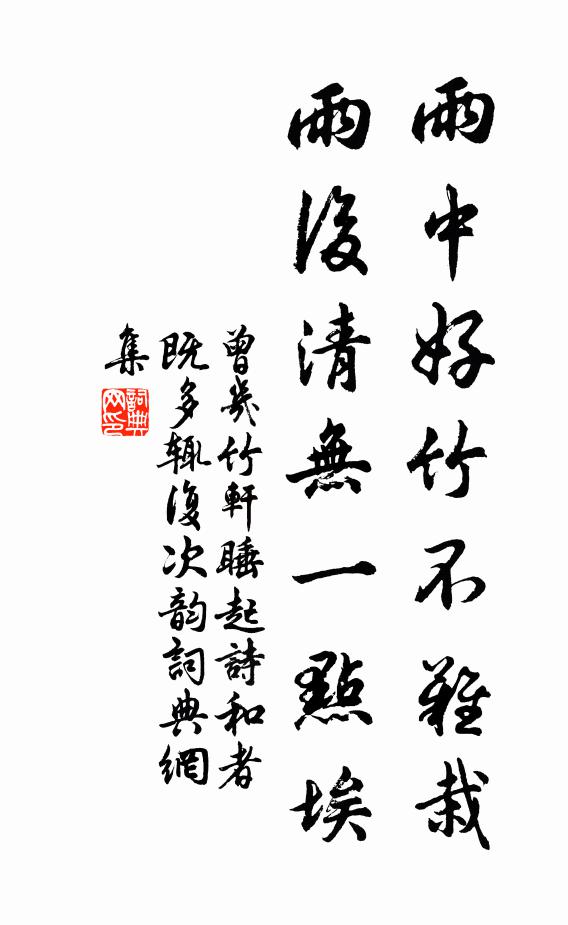 雨中好竹不難栽
雨後清無一點埃
曾幾竹軒睡起詩和者
既多辄復次韵詞典網
集
詞典
网印